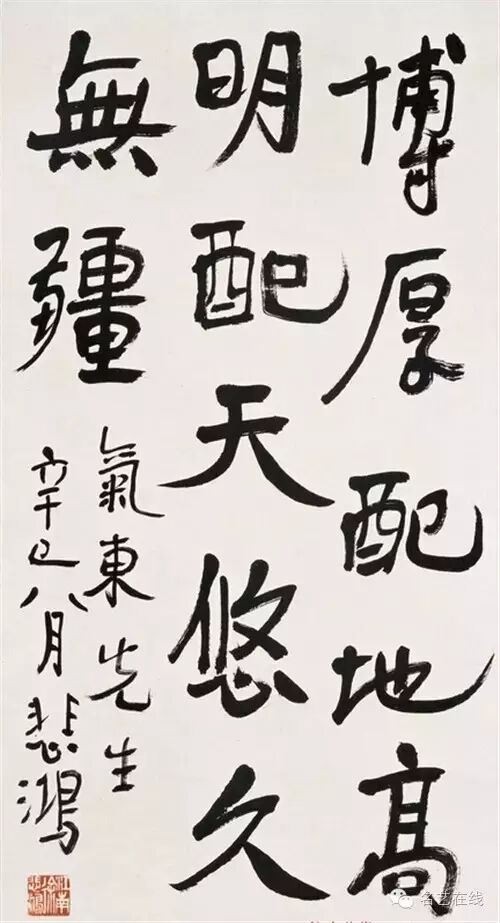 博厚配地高
明配天悠久
無疆
氣東先生
辛巳八月悲鴻
名艺在线